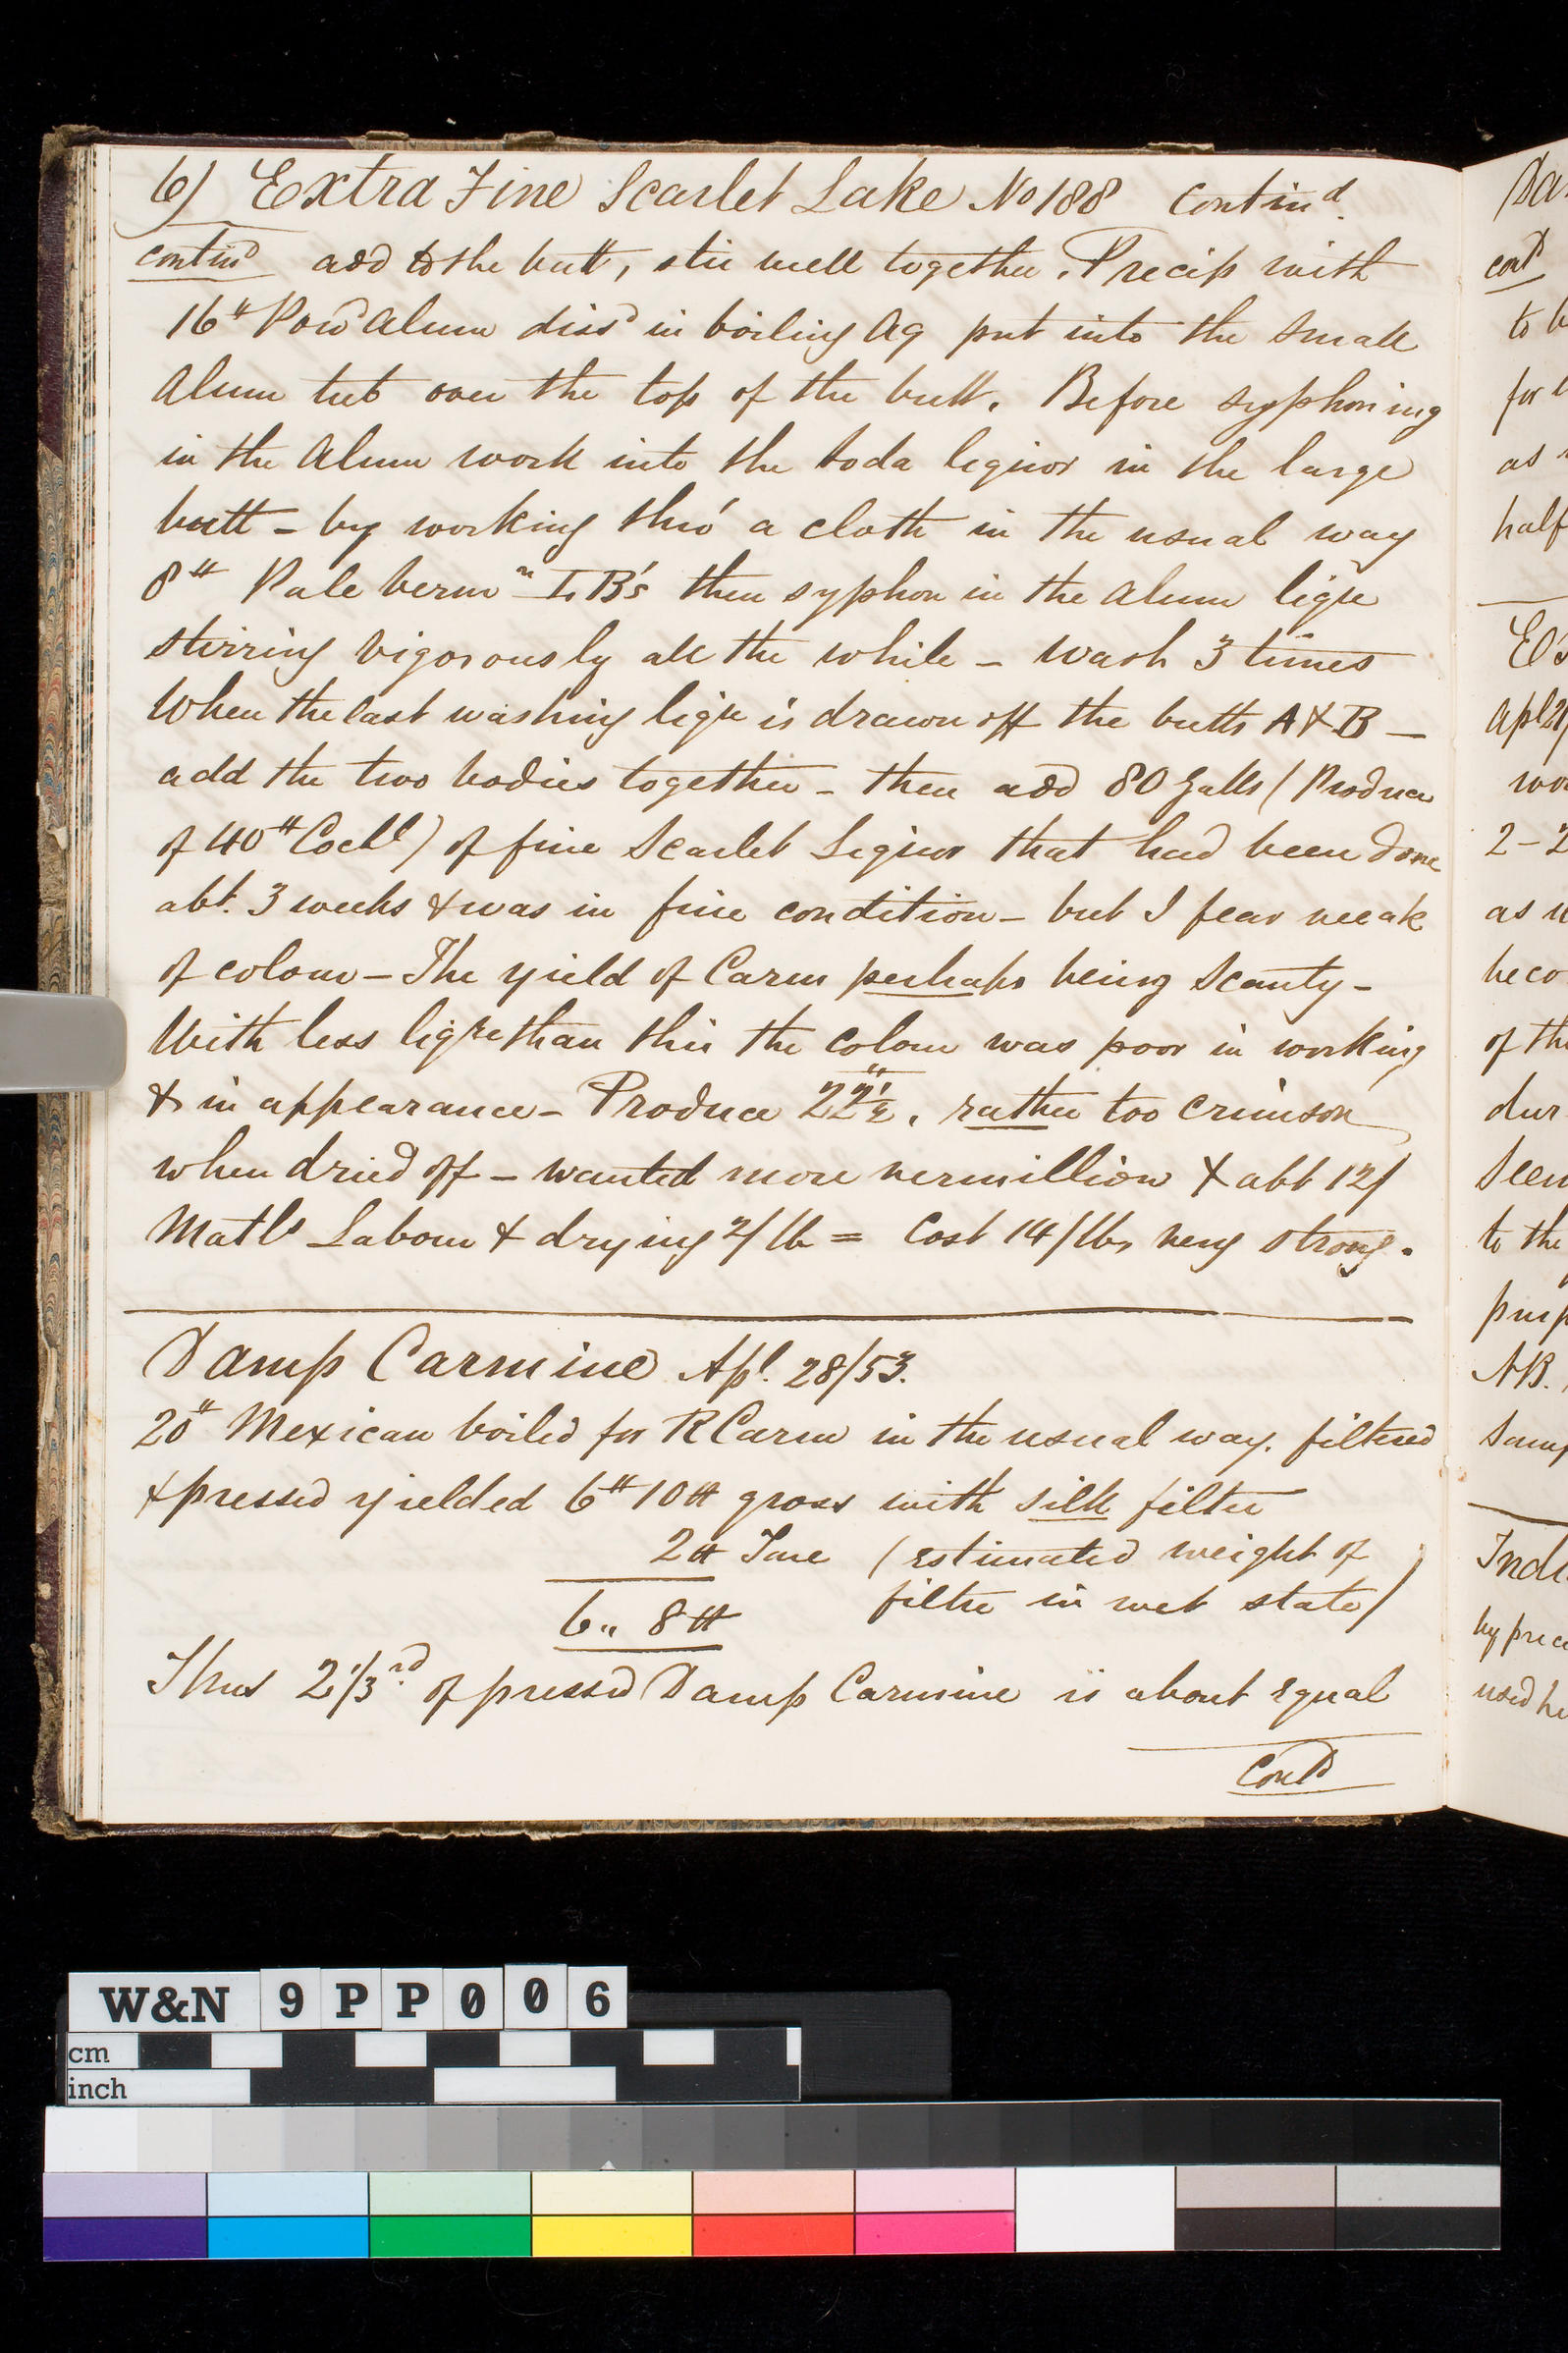 6) Extra Fine Scarlet Lake No 188 Contind.
contind add to the butt, stir well together. Precip with
16 ℔ Powd Alum dissd in boiling Aq put into the small
Alum tub over the top of the butt. Before syphoning
in the Alum work into the soda liquor in the large
butt – by working thro' a cloth in the usual way
8 ℔ Pale vermn I. B's then syphon in the Alum liqre
stirring vigorously all the while – wash 3 times
When the last washing liqre is drawn off the butts A & B –
add the two bodies together – then add 80 Galls (Produce
of 40 ℔ Cochl) of fine Scarlet Liquor that had been done
abt. 3 weeks & was in fine condition – but I fear weak
of colour – The yield of Carm perhaps being scanty –
With less liqre than this the colour was poor in working
& in appearance – Produce 22 1/2 ℔. rather too crimson
when dried off – wanted more vermillion & abt 12/
Matls Labour & drying 2/ lb = Cost 14/ lb, very strong.
Damp Carmine Apl. 28/53.
20 ℔ Mexican boiled for R Carm in the usual way. filtered
& pressed yielded 6 ℔ 10 gross with silk filter
2 Tare (estimated weight of
filter in wet state)
6 .. 8
Thus 2 1/3rd. of pressed Damp Carmine is about equal
Contd
cont
to b
for
as
half
Apl 21/
wo
2 – 2
as
beco
of the
dur
seem
to the
purp
NB.
samp
Indi
used
W&N 9PP006
cm
inch